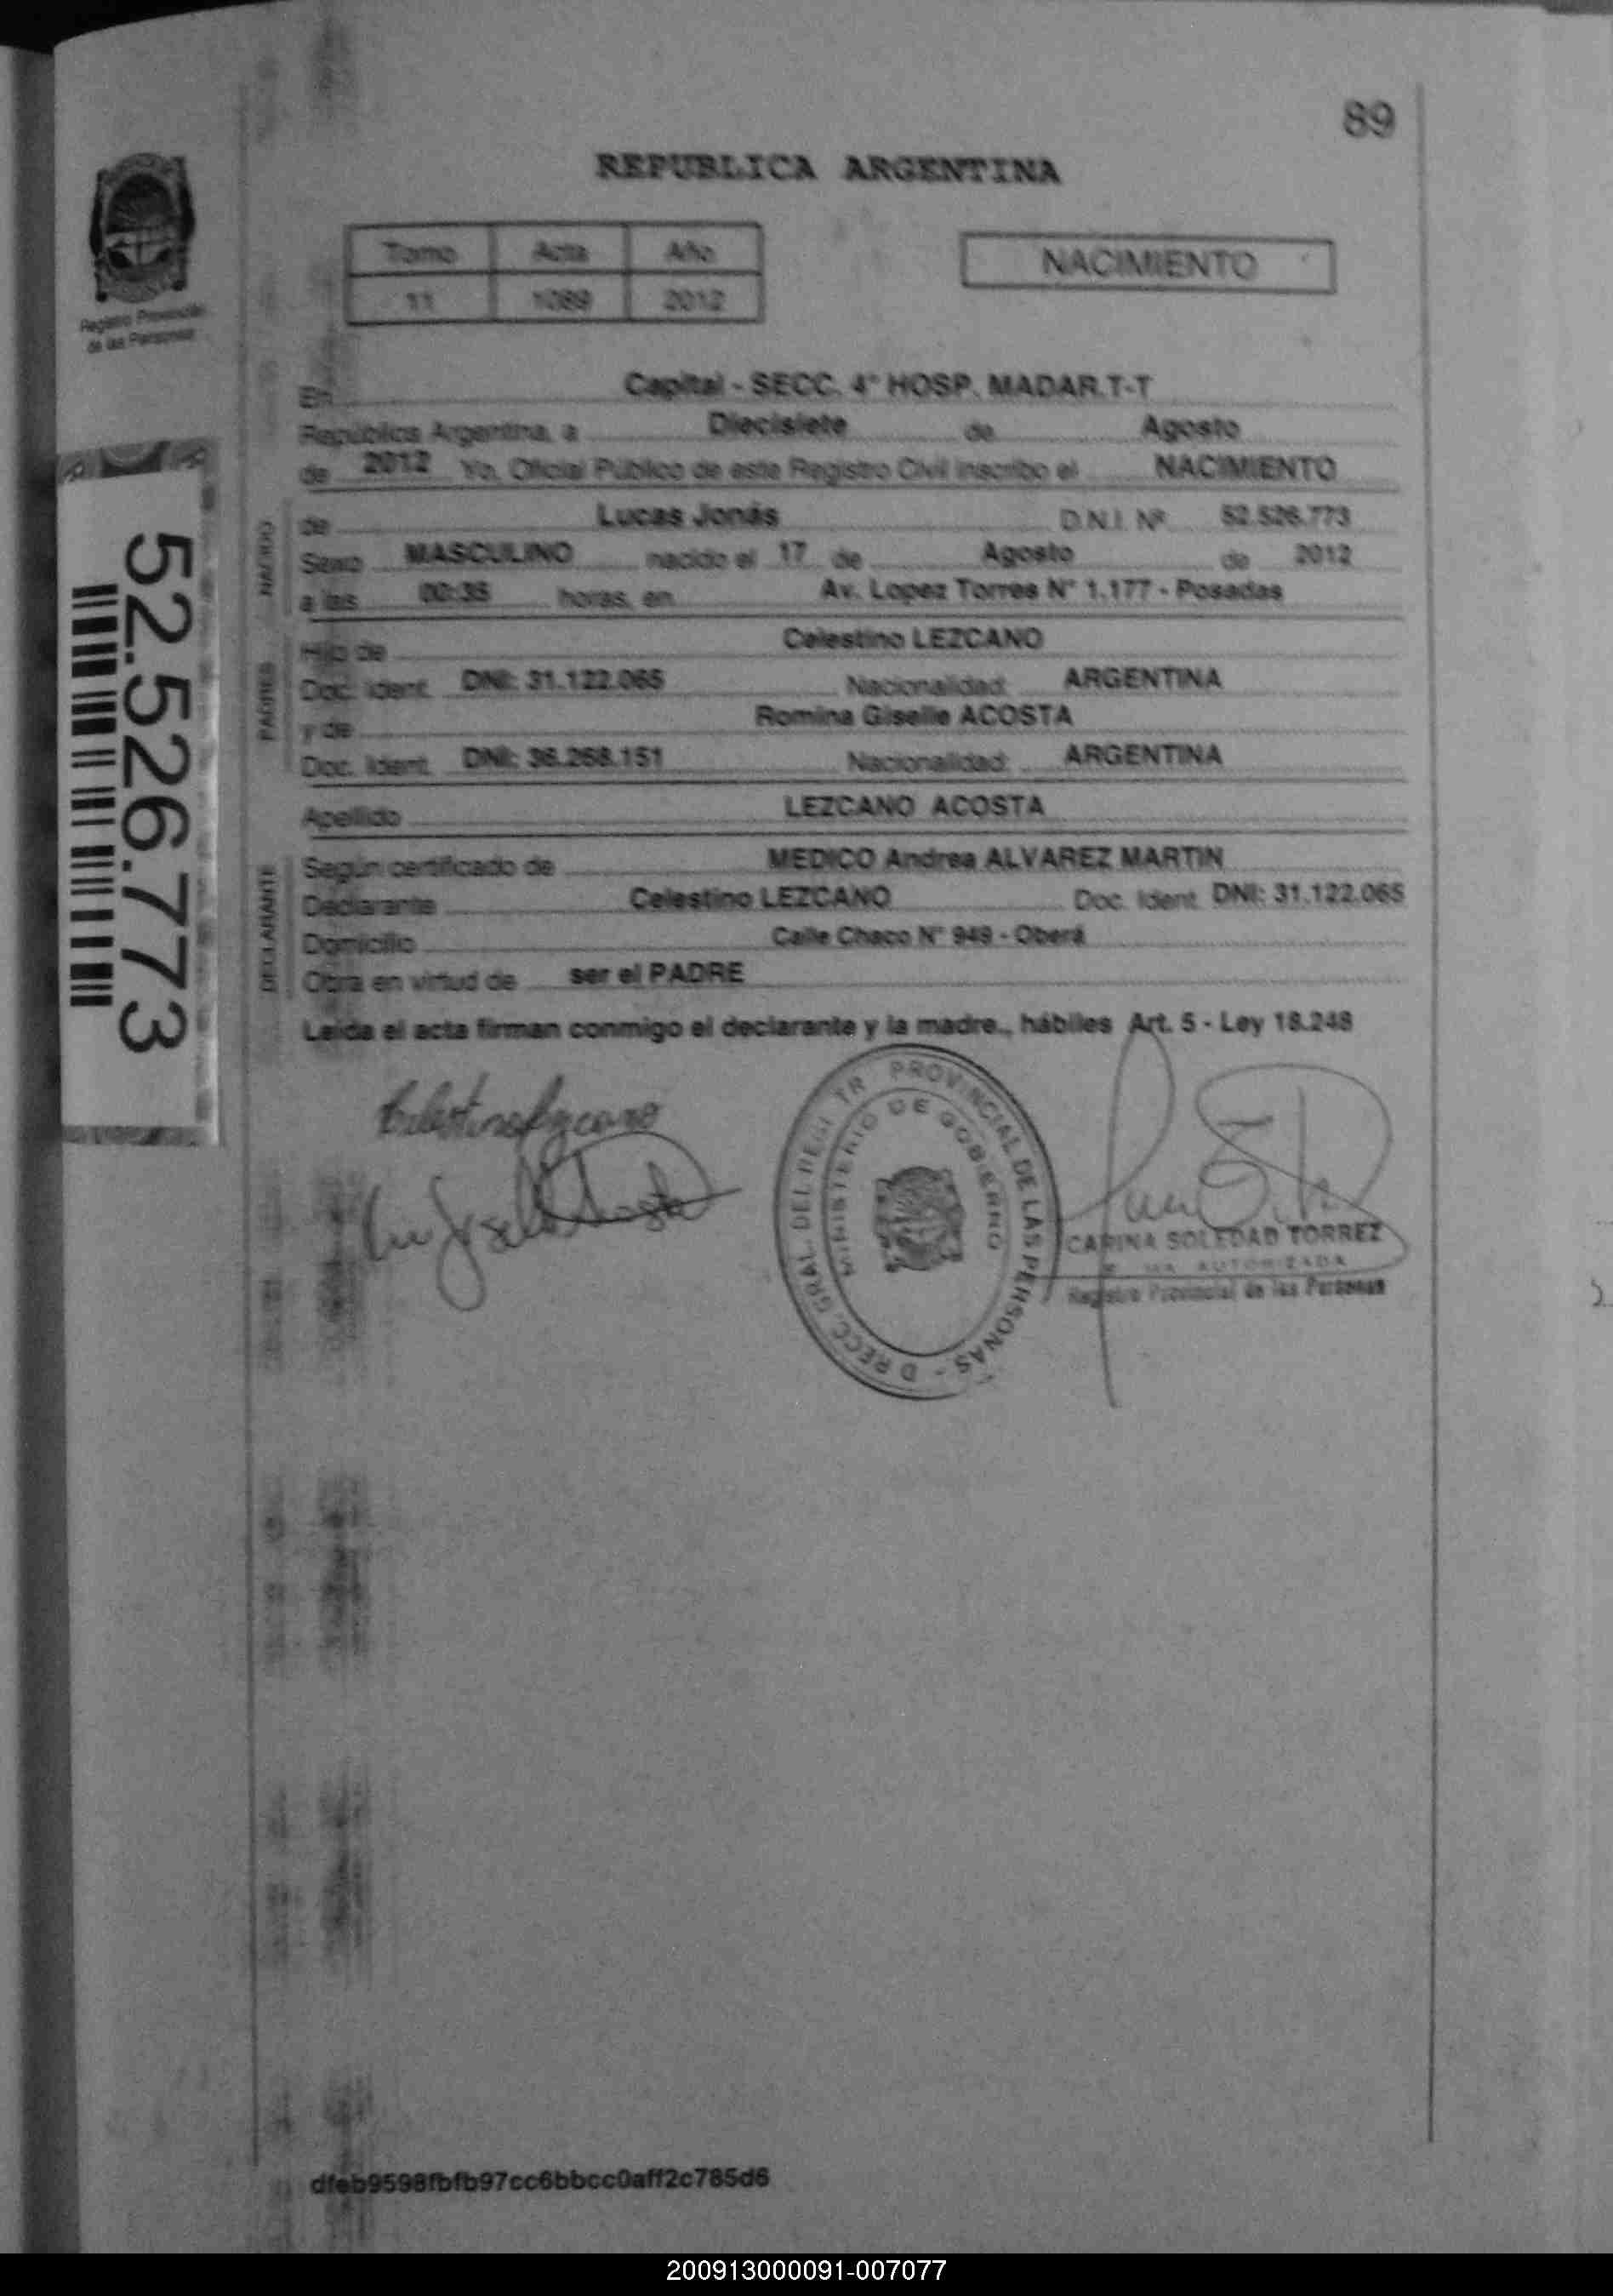 89
REPUBLICA ARGENTINA
Tomo Acta Año
11 1089 2012
NACIMIENTO
Registro Provincial
de las Personas
En Capital - SECC. 4° HOSP. MADAR.T-T
República Argentina, a Diecisiete de Agosto
de 2012 Yo, Oficial Público de este Registro Civil inscribo el NACIMIENTO
NACIDO
de Lucas Jonás D.N.I. Nº 52.526.773
Sexo MASCULINO nacido el 17 de Agosto de 2012
a las 00:35 horas, en Av. Lopez Torres N° 1.177 - Posadas
PADRES
Hijo de Celestino LEZCANO
Doc. Ident. DNI: 31.122.065 Nacionalidad: ARGENTINA
y de Romina Giselle ACOSTA
Doc. Ident. DNI: 36.268.151 Nacionalidad: ARGENTINA
Apellido LEZCANO ACOSTA
DECLARANTE
Según certificado de MEDICO Andrea ALVAREZ MARTIN
Declarante Celestino LEZCANO Doc. Ident. DNI: 31.122.065
Domicilio Calle Chaco N° 949 - Oberá
Obra en virtud de ser el PADRE
Leída el acta firman conmigo el declarante y la madre., hábiles Art. 5 - Ley 18.248
52.526.773
PROVINCIAL DE LAS PERSONAS -
MINISTERIO DE GOBIERNO
CARINA SOLEDAD TORREZ
AUTORIZADA
Registro Provincial de las Personas
dfeb9598fbfb97cc6bbcc0aff2c785d6
200913000091-007077